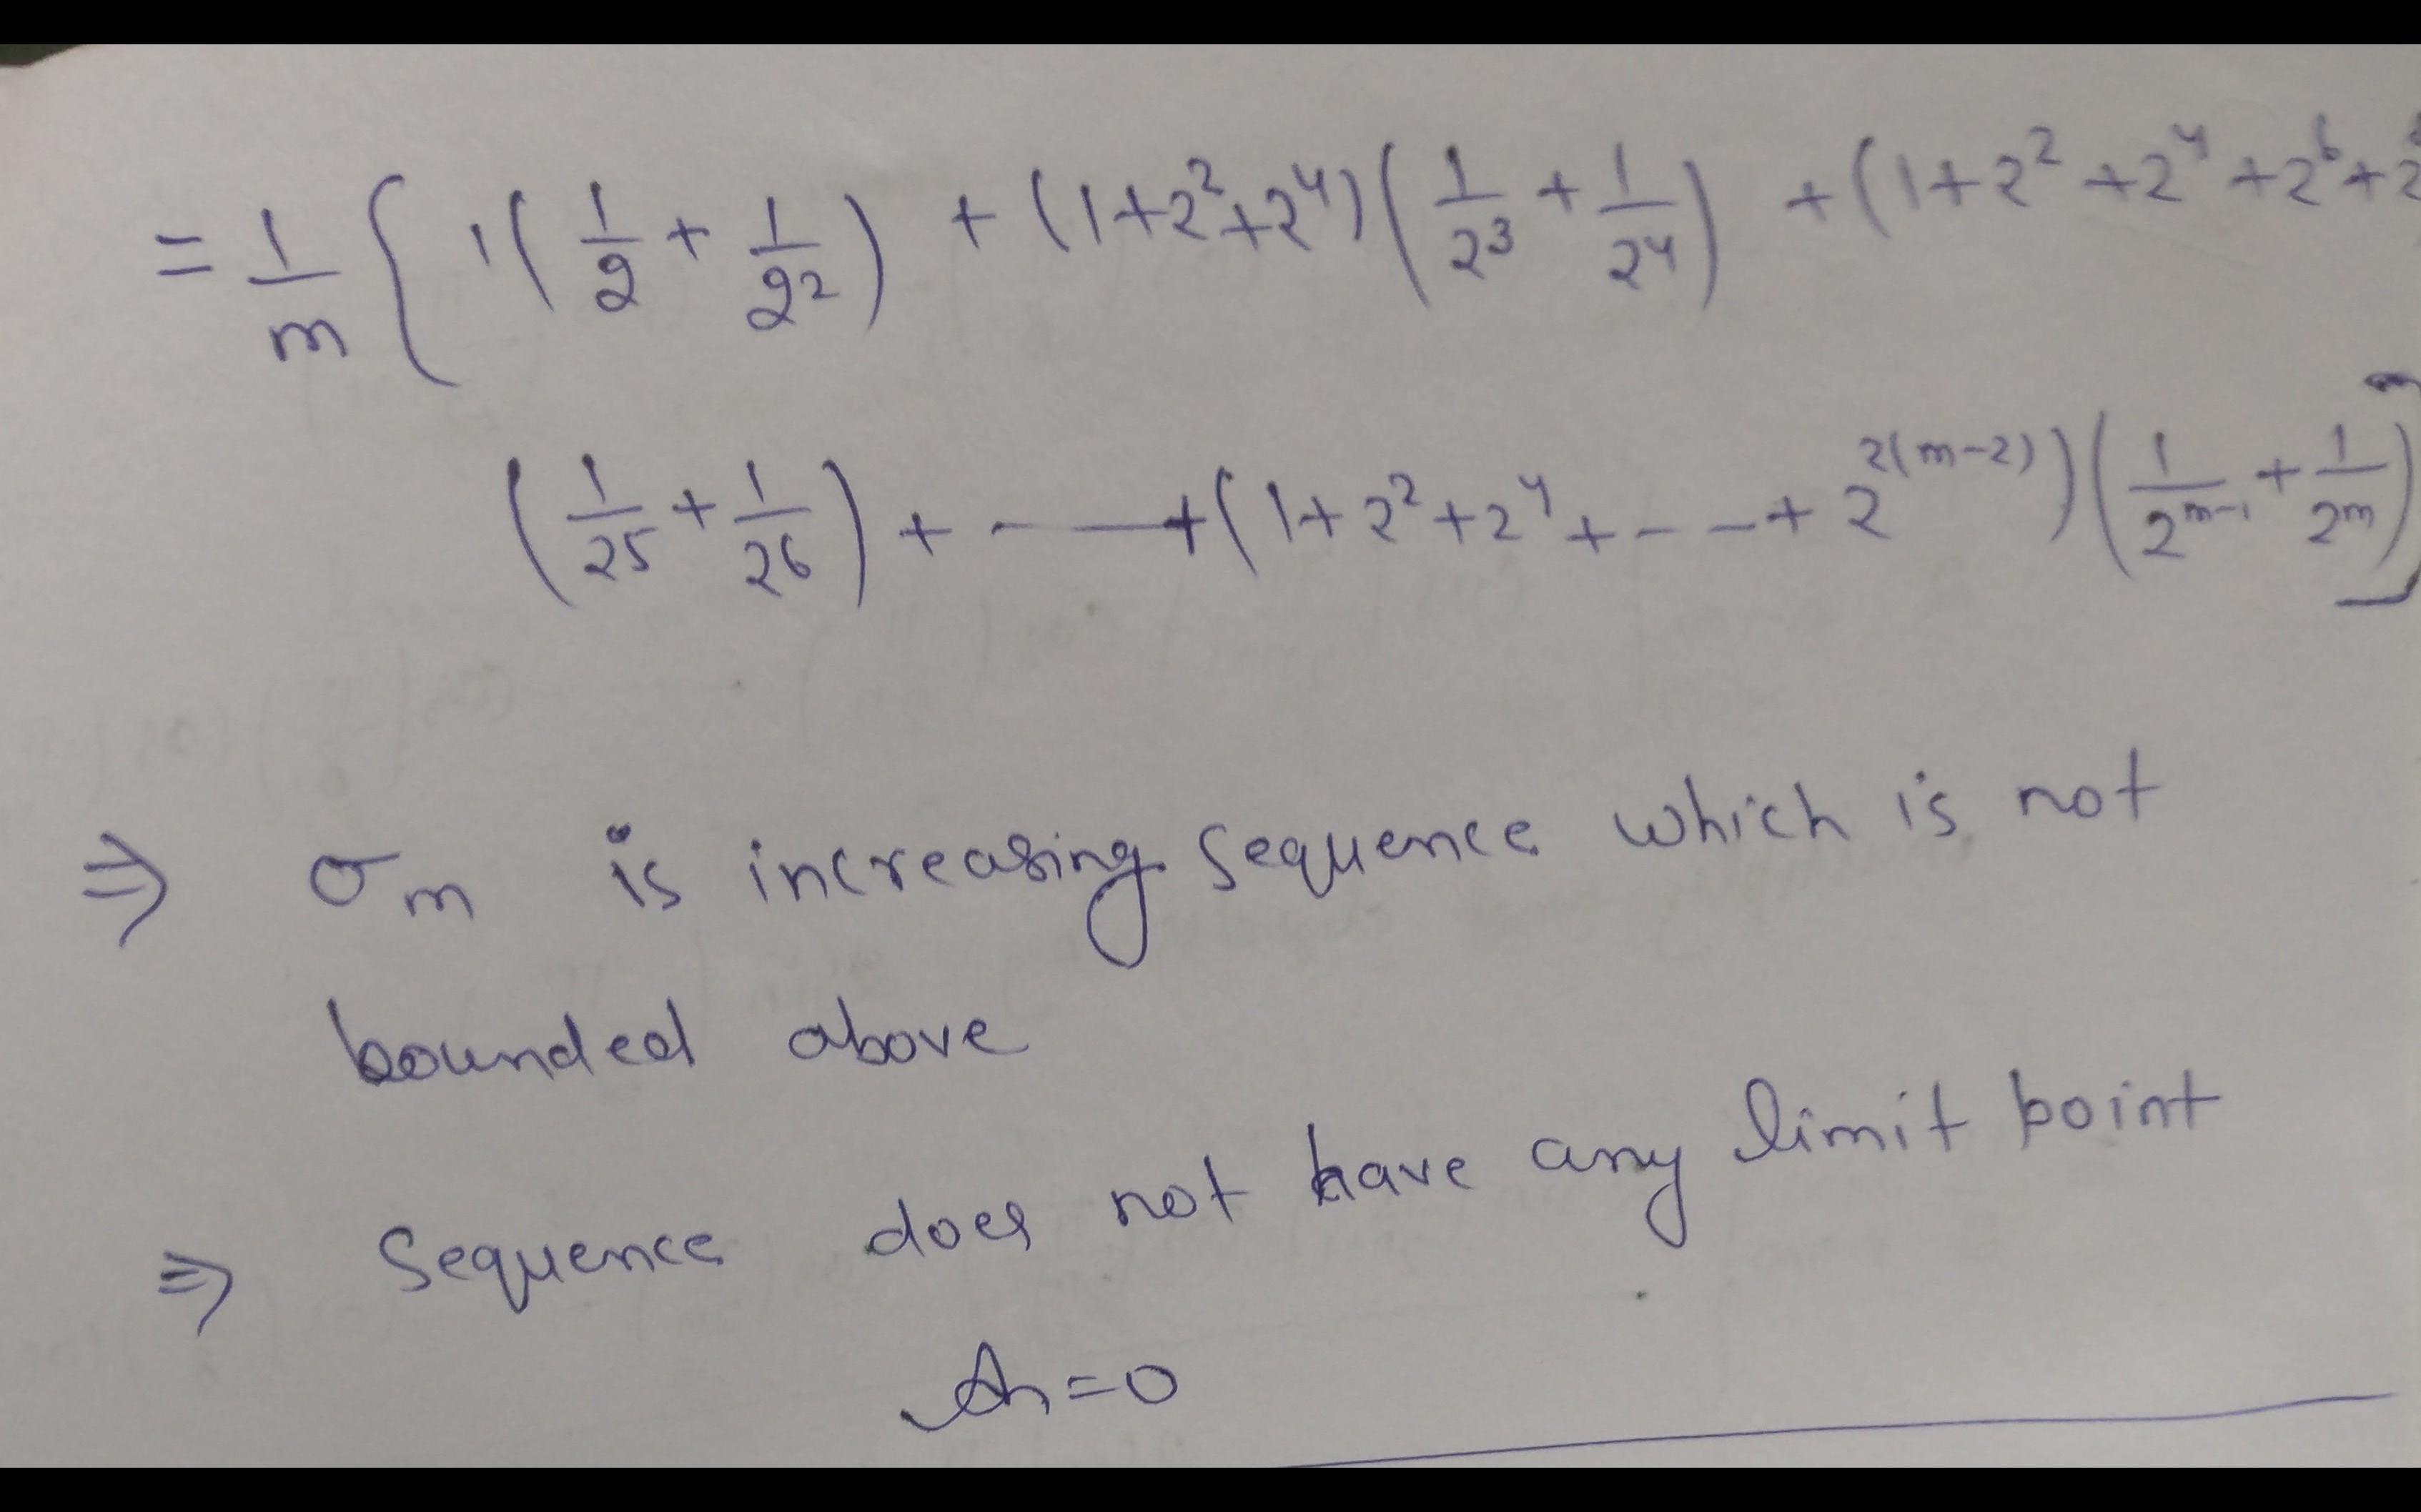 = 1/m { 1(1/2 + 1/2²) + (1+2²+2⁴)(1/2³ + 1/2⁴) + (1+2²+2⁴+2⁶+2
(1/2⁵ + 1/2⁶) + - — +(1+2²+2⁴+---+ 2^{2(m-2)})(1/2^{m-1} + 1/2^m)]
⇒ σₘ is increasing sequence which is not
bounded above
⇒ Sequence does not have any limit point
An=0